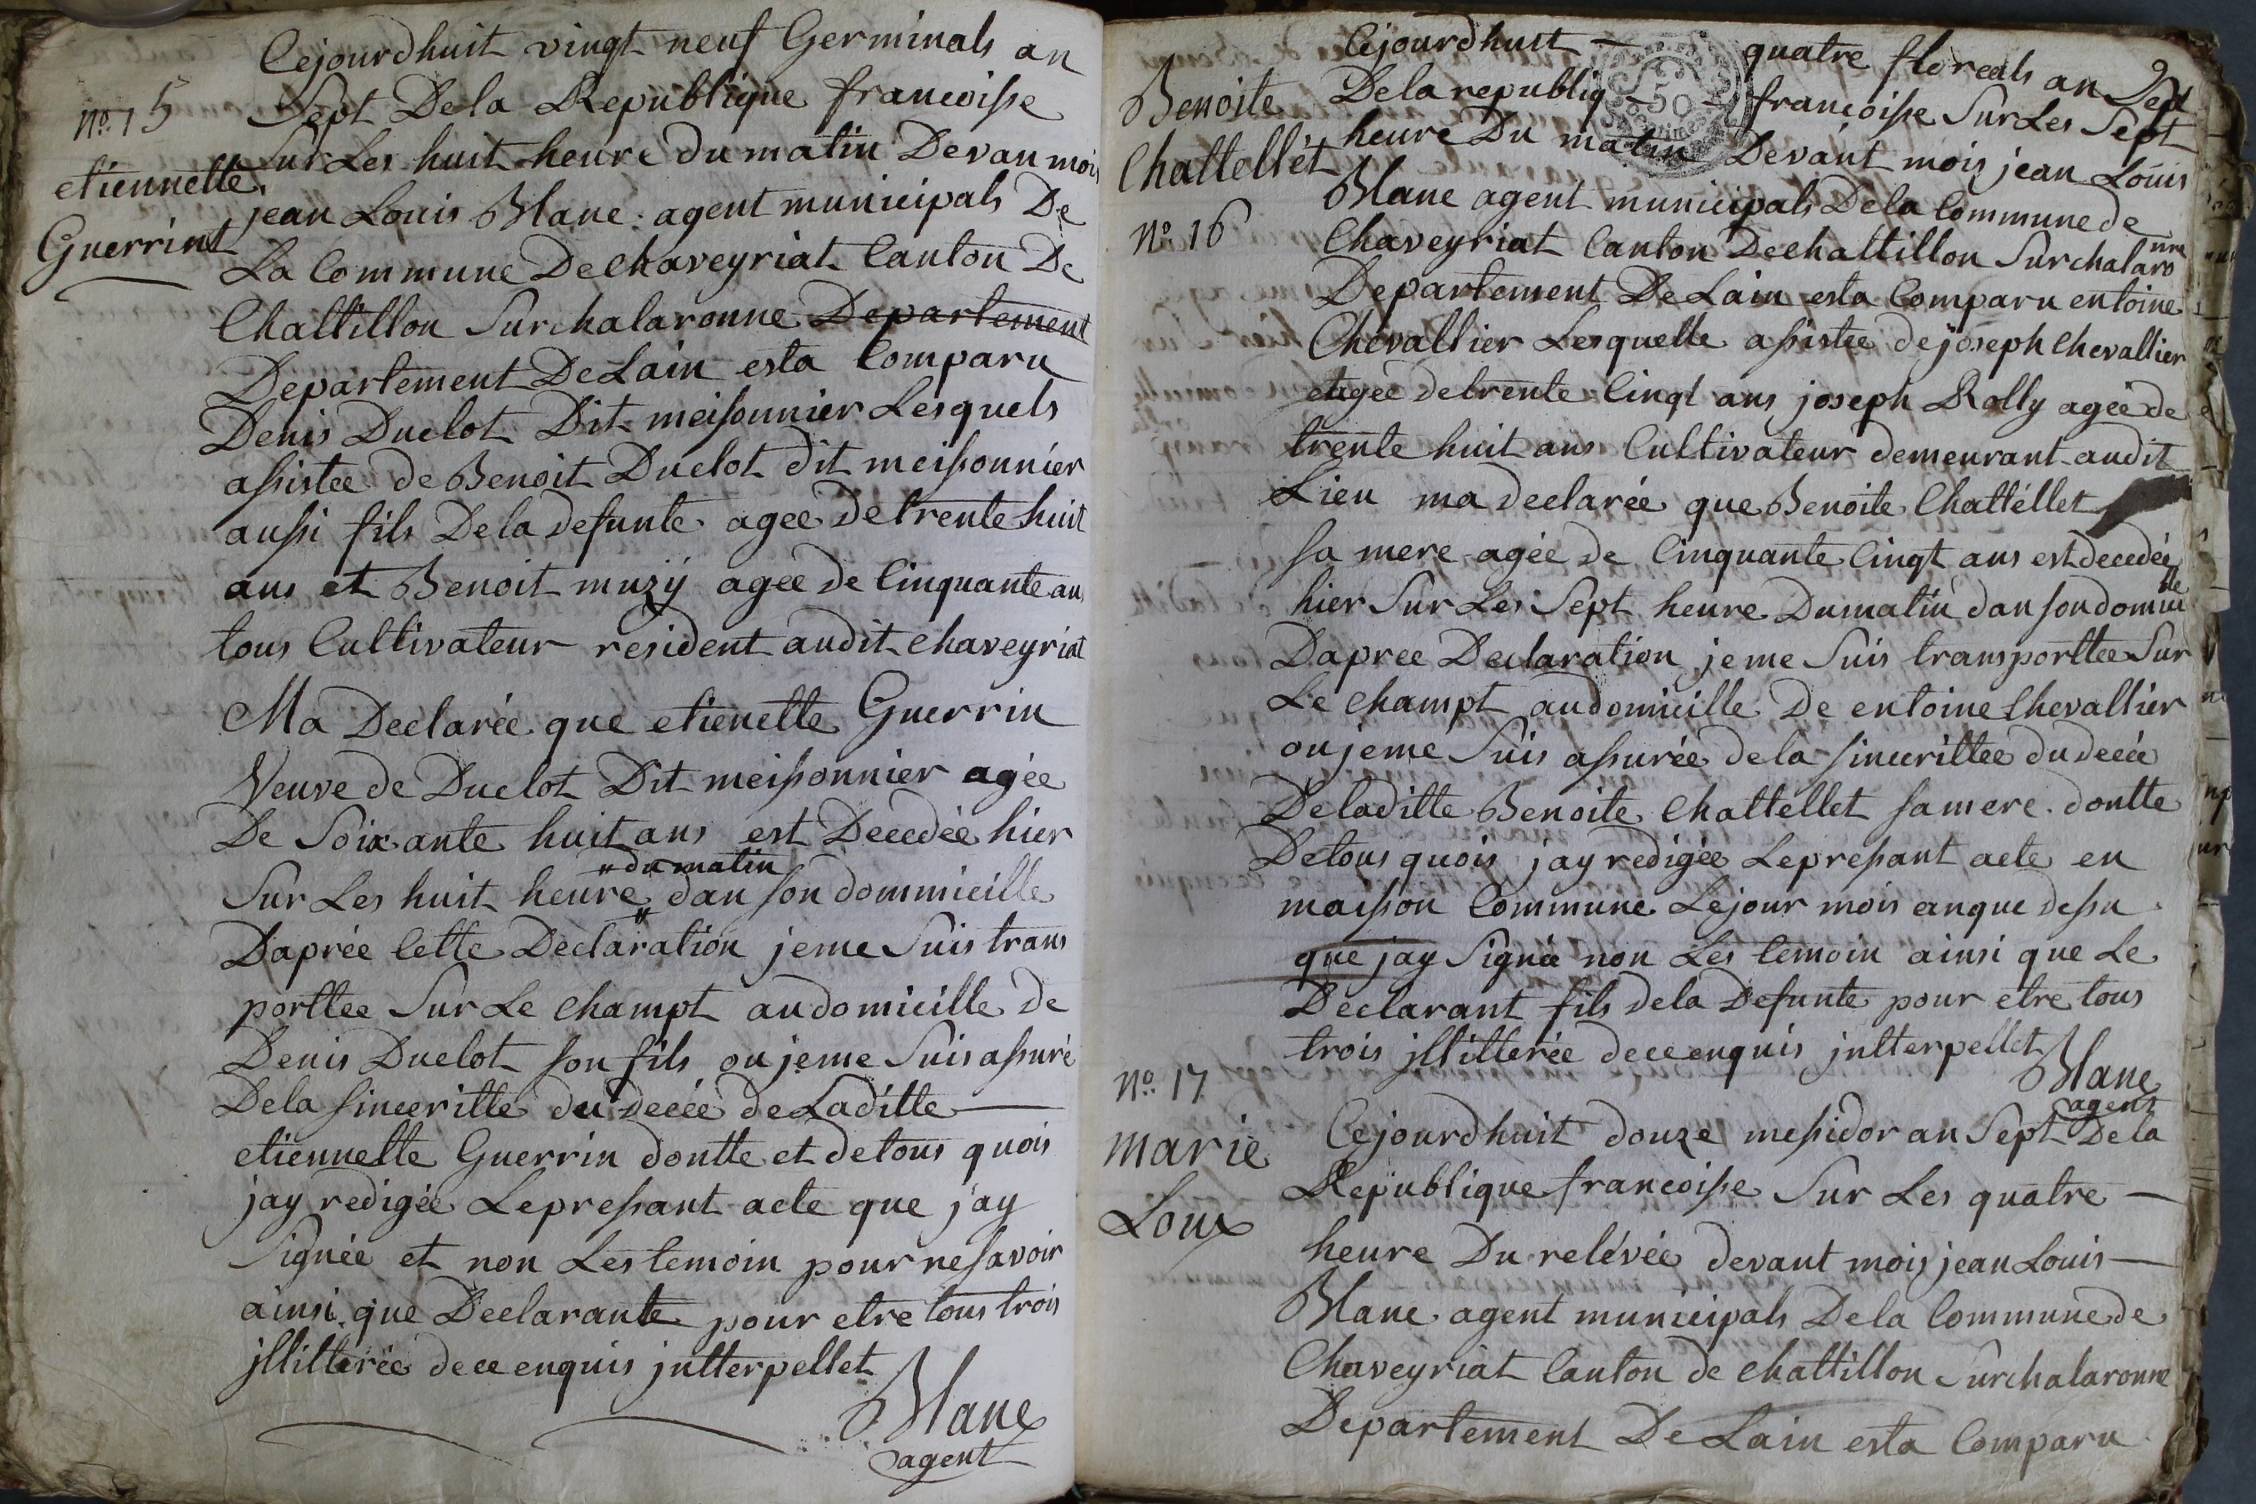 Cejourdhuit vingt neuf Germinals an
Sept Dela Republique francoisse
N.o 15
Sur Les huit heure du matin Devan mois
etiennette
jean Louis Blanc. agent municipals De
Guerrint
La Commune De Chaveyriat Canton De
Chattillon Surchalaronne Departement
Departement De Lain esta Comparu
Denis Duclot Dit meissonnier Lesquels
assistée de Benoit Duclot dit meissonnier
aussi fils Dela defunte agee De trente huit
ans et Benoit muzÿ agee de Cinquante an
tous Cultivateur resident audit chaveyriat
Ma Declarée que etienette Guerrin
Veuve de Duclot Dit meissonnier agée
De Soixante huit ans est Decedée hier
"du matin
Sur Les huit heure " dan son dommicille
Daprée Cette Declaration jeme Suis trans
porttee Sur Le champt audomicille de
Denis Duclot son fils oujeme Suis assuré
Dela sinceritte du decée de Laditte
etiennette Guerrin dontte et detous quois
jay redigée Lepressant acte que jay
Signée et non Les temoin pour nesavoir
ainsi que Declarante pour etre tous trois
jllitterée dece enquis jntterpellet
Blanc
agent
9
Cejourdhuit quatre floreals an Sept
Benoite
Dela republiq francoisse Sur Les Sept
50
heure Du matin Devant mois jean Louis
Chattellét
Blanc agent municipals Dela Commune de
N.o 16
Chaveyriat Canton Dechattillon Surchalaronne
Departement De Lain esta Comparu entoine
Chevallier Lesquelle assistée dejoseph chevallier
etagée detrente Cinqt ans joseph Rolly ageé de
trente huit ans Cultivateur demeurant audit
Lieu ma declarée que Benoite Chattéllet
sa mere agée de Cinquante Cingt ans est decedée
hier Sur Les Sept heure Dumatin dan son domicille
Dapree Declaration jeme Suis transporttee Sur
Le champt audomicille De entoine Chevallier
oujeme Suis assurée dela sincerittee du decée
Deladitte Benoite Chattellet samere. dontte
Detous quois jay redigée Lepressant acte en
maisson Commune Lejour mois anque dessu
que jay Signée non Les temoin ainsi que Le
Declarant fils dela Defunte pour etre tous
trois jllitterée dece enquis jntterpellet
Blanc
agent
N.o 17
Cejourdhuit douze messidor an Sept Dela
marie
Republique francoisse Sur Les quatre
Loux
heure Du relévée devant mois jean Louis
Blanc agent municipals Dela Commune de
Chaveyriat Canton de chattillon Surchalaronne
Departement De Lain esta Comparu